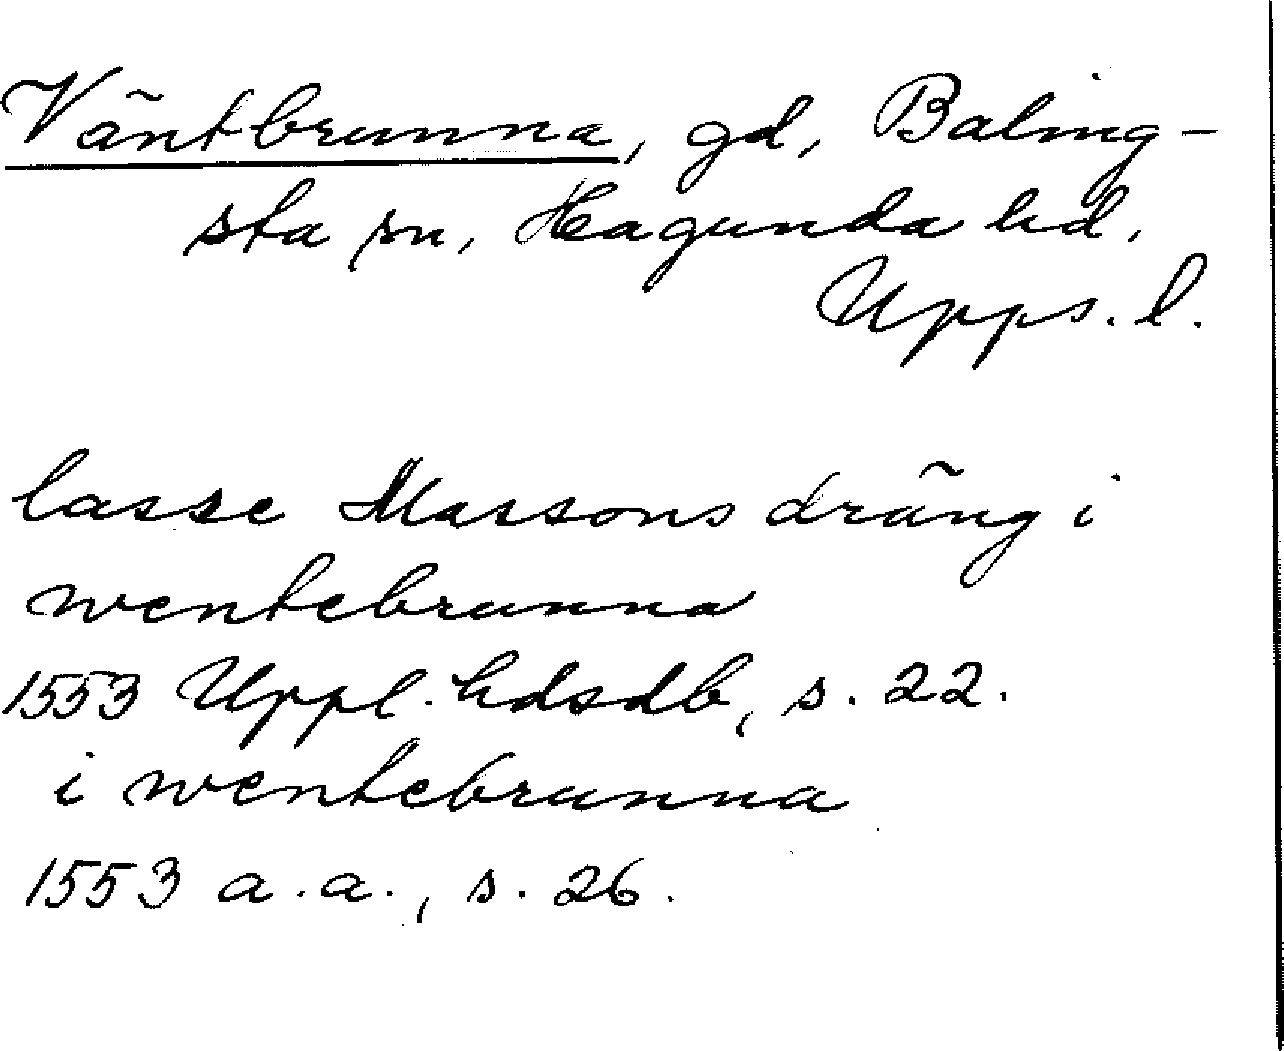 Väntbrunna, gd, Baling-
sta sn, Hagunda hd,
Upps. l.
lasse Massons dräng i
wentebrunna
1553 Uppl. hdsdb, s. 22.
i wentebrunna
1553 a.a., s. 26.